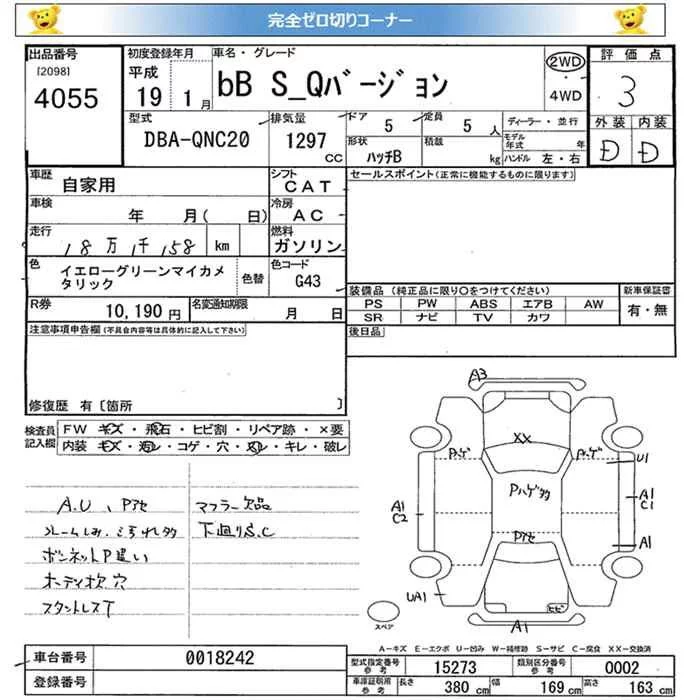 完全ゼロ切りコーナー
出品番号
[2098]
4055
初度登録年月
平成
19 1月
車名・グレード
bB S_Qバージョン
2WD
4WD
評価点
3
外装 内装
D D
型式
DBA-QNC20
排気量
1297
CC
ドア
5
定員
5 人
形状
ハッチB
積載
kg
ディーラー・並行
モデル年式 年
ハンドル 左・右
車歴
自家用
シフト
CAT
車検
年 月( 日)
冷房
AC
走行
18万1千158 km
燃料
ガソリン
色
イエローグリーンマイカメ
タリック
色替
色コード
G43
R券
10,190円
名変通知期限
月 日
セールスポイント(正常に機能するものに限ります)
装備品(純正品に限り○をつけてください)
PS PW ABS エアB AW
SR ナビ TV カワ
新車保証書
有・無
後日品
注意事項申告欄(不具合内容等は具体的に記入して下さい)
修復歴 有〔箇所 〕
検査員
記入欄
FW キズ・飛石・ヒビ割・リペア跡・×要
内装 キズ・汚レ・コゲ・穴・切レ・キレ・破レ
A.U、Pアセ
マフラー欠品
下廻りS.C
ボンネットP違い
スタットレスT
A3
XX
Pハゲ
Pハゲ
U1
Pハゲ多
A1
C2
A1
C1
Pアセ
A1
UA1
ヒビ
A1
スペア
A−キズ E−エクボ U−凹み W−補修跡 S−サビ C−腐食 XX−交換済
車台番号
0018242
登録番号
型式指定番号
参考
15273
類別区分番号
参考
0002
車庫証明用
参考
長さ
380 cm
幅
169 cm
高さ
163 cm